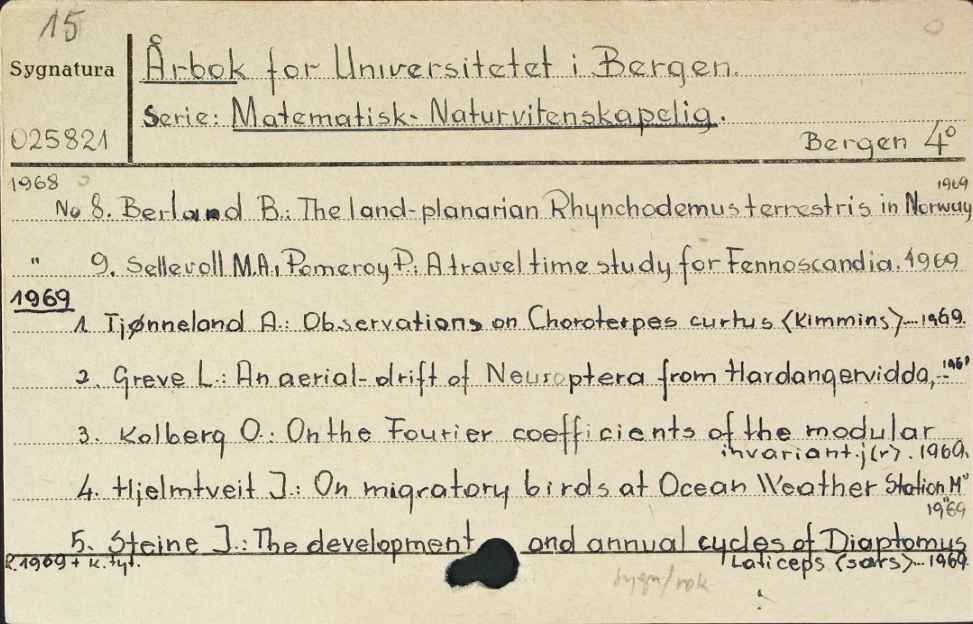 15
Sygnatura
Årbok for Universitetet i Bergen.
Serie: Matematisk- Naturvitenskapelig.
025821
Bergen 4°
1968
No 8. Berland B.: The land-planarian Rhynchodemus terrestris in Norway 1969
" 9. Sellevoll M.A., Pomeroy P.: A travel time study for Fennoscandia. 1969
1969
1. Tjønneland A.: Observations on Choroterpes curtus (Kimmins) 1969.
2. Greve L.: An aerial-drift of Neuroptera from Hardangervidda, 1969
3. Kolberg O.: On the Fourier coefficients of the modular
invariant j(r). 1969.
4. Hjelmtveit J.: On migratory birds at Ocean Weather Station M"
1969
5. Steine J.: The development and annual cycles of Diaptomus
R.1969 + k. tyt.
Laticeps (sars) 1969
sygn/rok